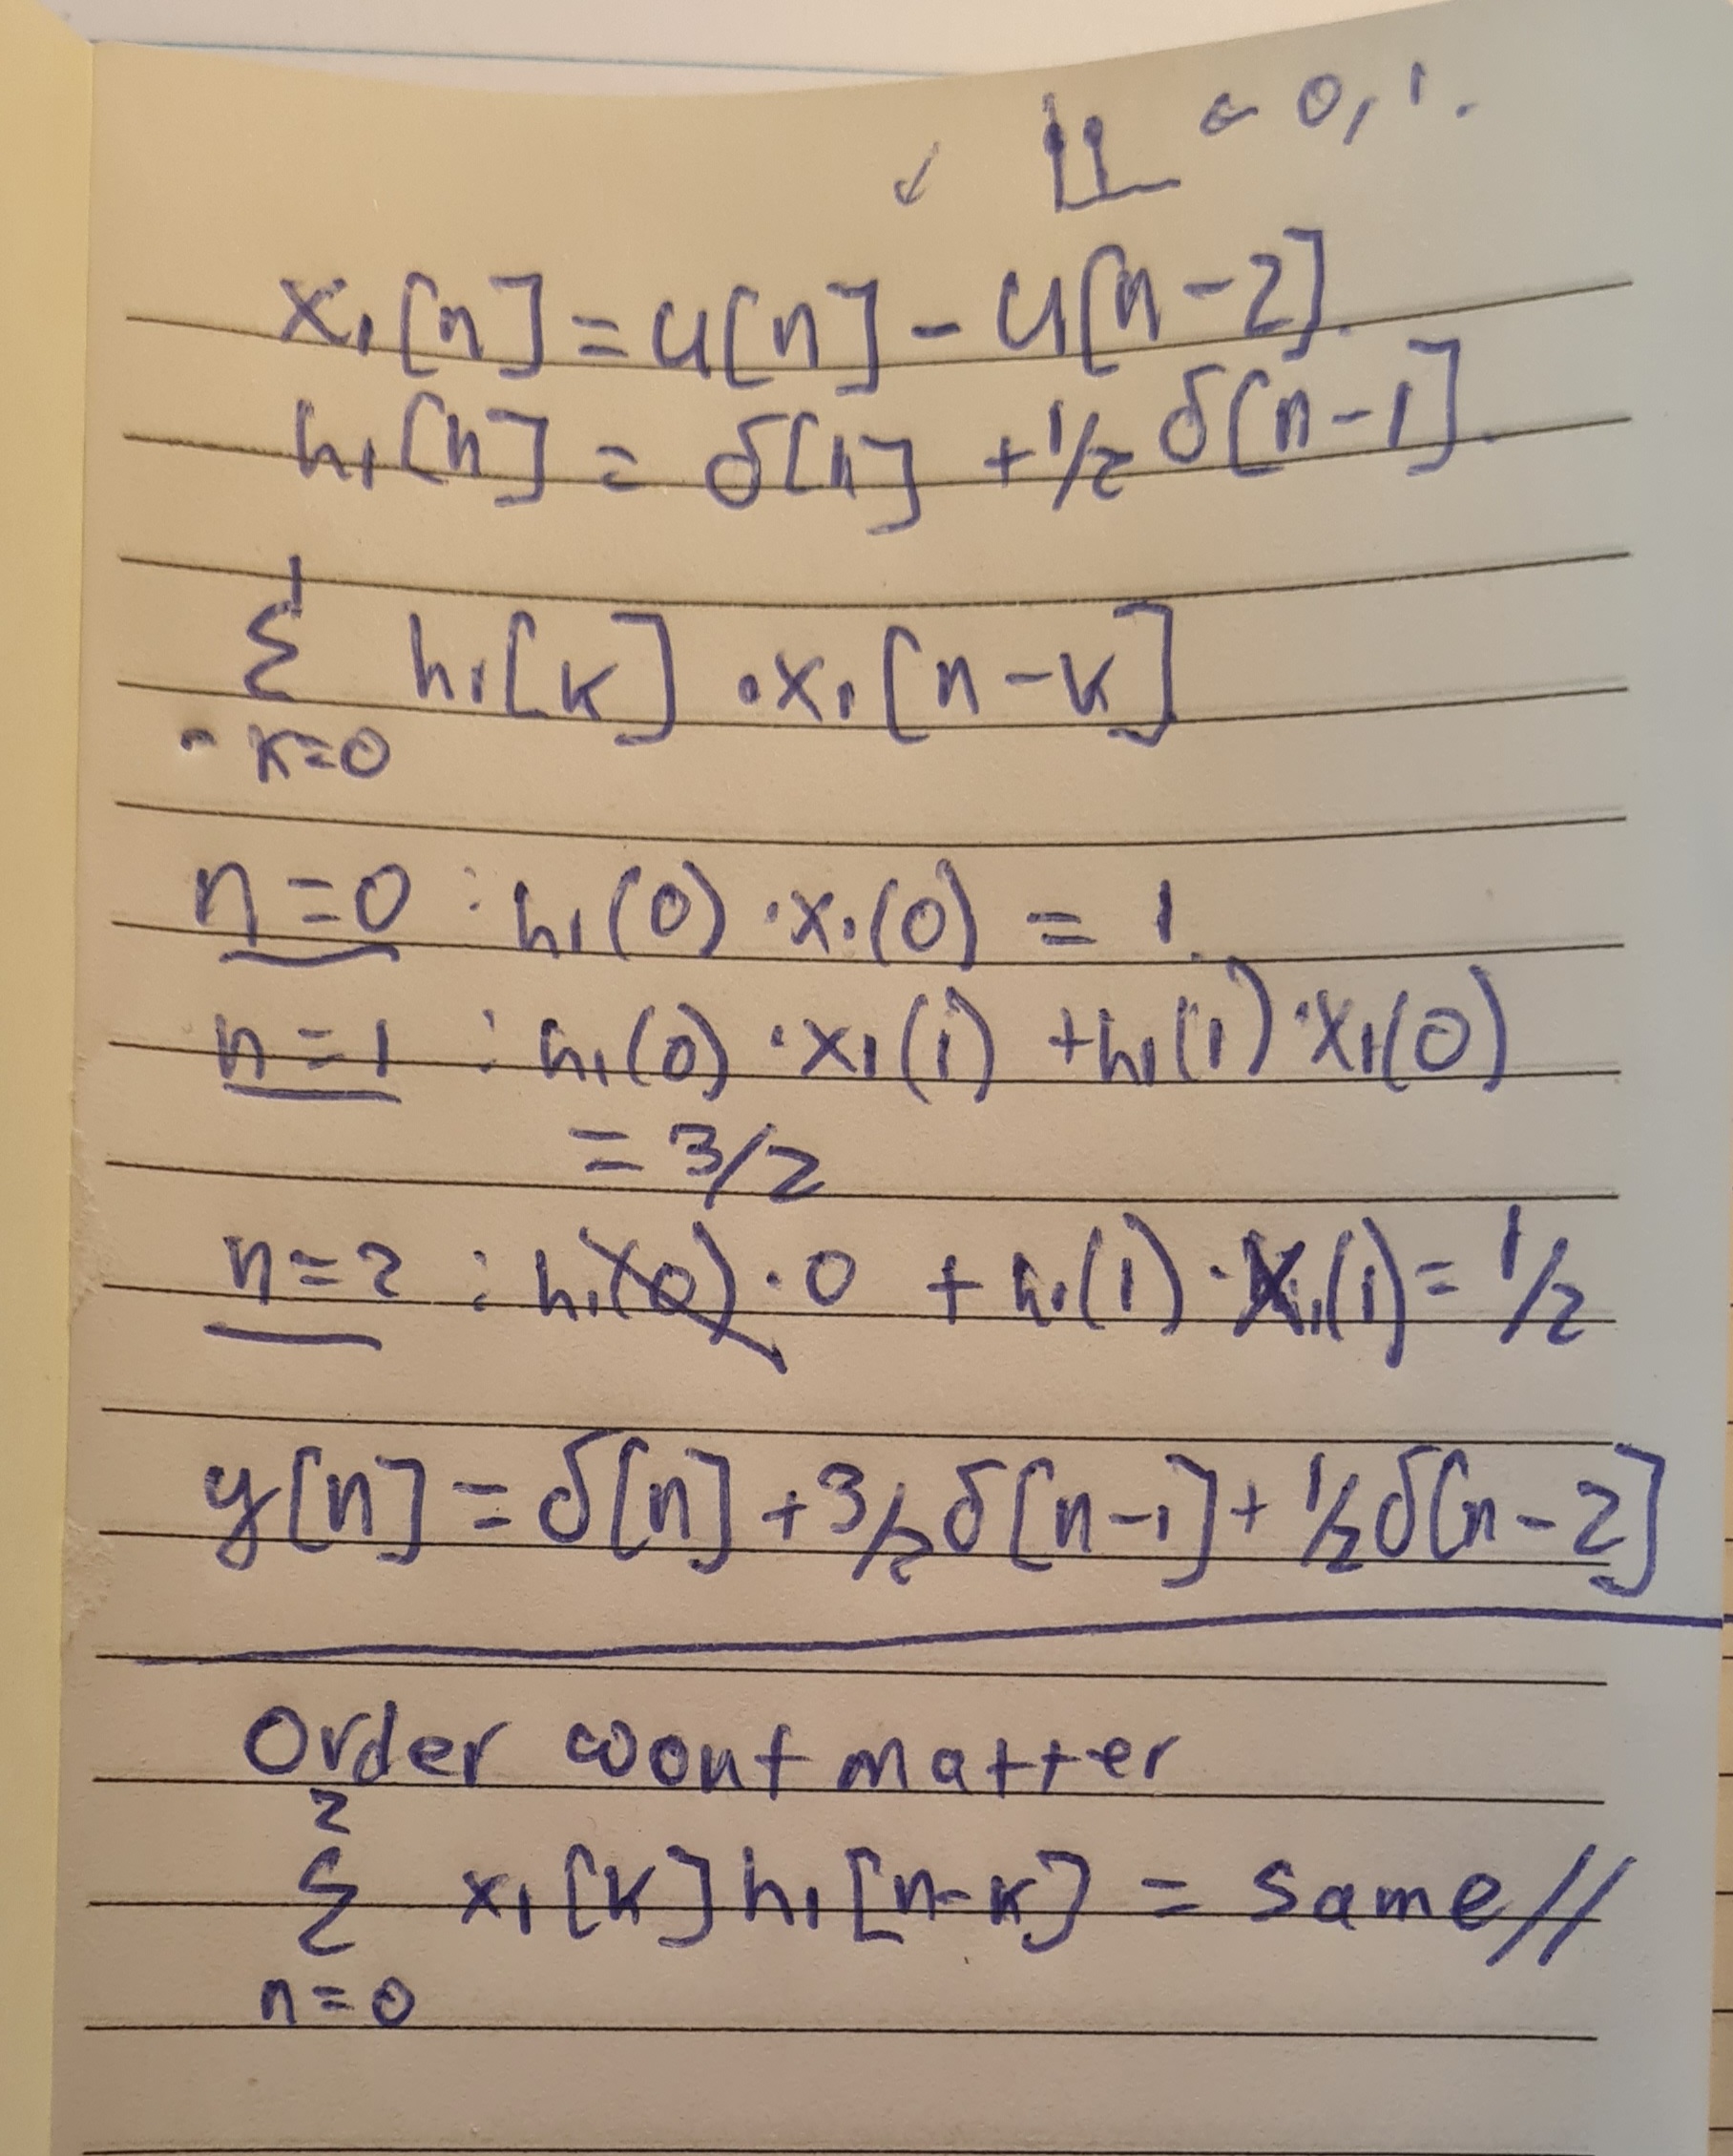 ← 0, 1.
↙
x₁[n] = u[n] - u[n-2].
h₁[n] = δ[n] + 1/2 δ[n-1].
1
Σ h₁[k] · x₁[n-k]
k=0
n=0 : h₁(0) · x₁(0) = 1.
n=1 : h₁(0) · x₁(1) + h₁(1) · x₁(0)
= 3/2
n=2 : h₁(0) · 0 + h₁(1) · x₁(1) = 1/2
y[n] = δ[n] + 3/2 δ[n-1] + 1/2 δ[n-2]
Order wont matter
2
Σ x₁[k] h₁[n-k] = same //
n=0